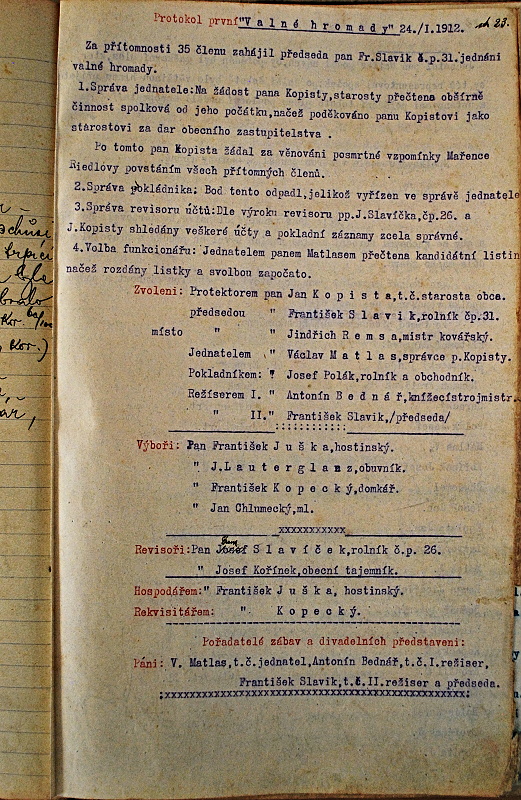 Protokol první "V a l n é  h r o m a d y" 24./I.1912. 23.
Za přítomnosti 35 členu zahájil předseda pan Fr.Slavik č.p.31.jednáni
valné hromady.
1.Správa jednatele:Na žádost pana Kopisty,starosty přečtena obšírně
činnost spolková od jeho počátku,načež poděkováno panu Kopistovi jako
starostovi za dar obecního zastupitelstva .
Po tomto pan Kopista žádal za věnováni posmrtné vzpomínky Mařence
Riedlovy povstáním všech přítomných členů.
2.Správa pokládnika: Bod tento odpadl,jelikož vyřízen ve správě jednatele
3.Správa revisoru účtů:Dle výroku revisoru pp.J.Slavíčka,čp.26. a
J.Kopisty shledány veškeré účty a pokladní záznamy zcela správné.
4.Volba funkcionářu: Jednatelem panem Matlasem přečtena kandidátní listin
načež rozdány listky a svolbou započato.
Zvoleni: Protektorem pan Jan K o p i s t a,t.č.starosta obca.
předsedou " František S l a v i k,rolník čp.31.
místo " " Jindřich R e m s a,mistr kovářský.
Jednatelem " Václav M a t l a s,správce p.Kopisty.
Pokladníkem: " Josef Polák,rolník a obchodník.
Režíserem I. " Antonín B e d n á ř,knížecístrojmistr.
" II." František Slavik,/předseda/
::::::::::::
Výboři: Pan František J u š k a,hostinský.
" J.L a u t e r g l a n z,obuvník.
" František K o p e c k ý,domkář.
" Jan Chlumecký,ml.
xxxxxxxxxxx
Revisoři:Pan Josef S l a v í č e k,rolník č.p. 26.
" Josef Kořínek,obecní tajemník.
Hospodářem:" František J u š k a, hostinský.
Rekvisitářem: ". K o p e c k ý.
Pořadatelé zábav a divadelních představeni:
Páni: V. Matlas,t.č.jednatel,Antonín Bednář,t.č.I.režiser,
František Slavik,t.č.II.režiser a předseda.
:xxxxxxxxxxxxxxxxxxxxxxxxxxxxxxxxxxxxxxxxxxxxxxxxxx: